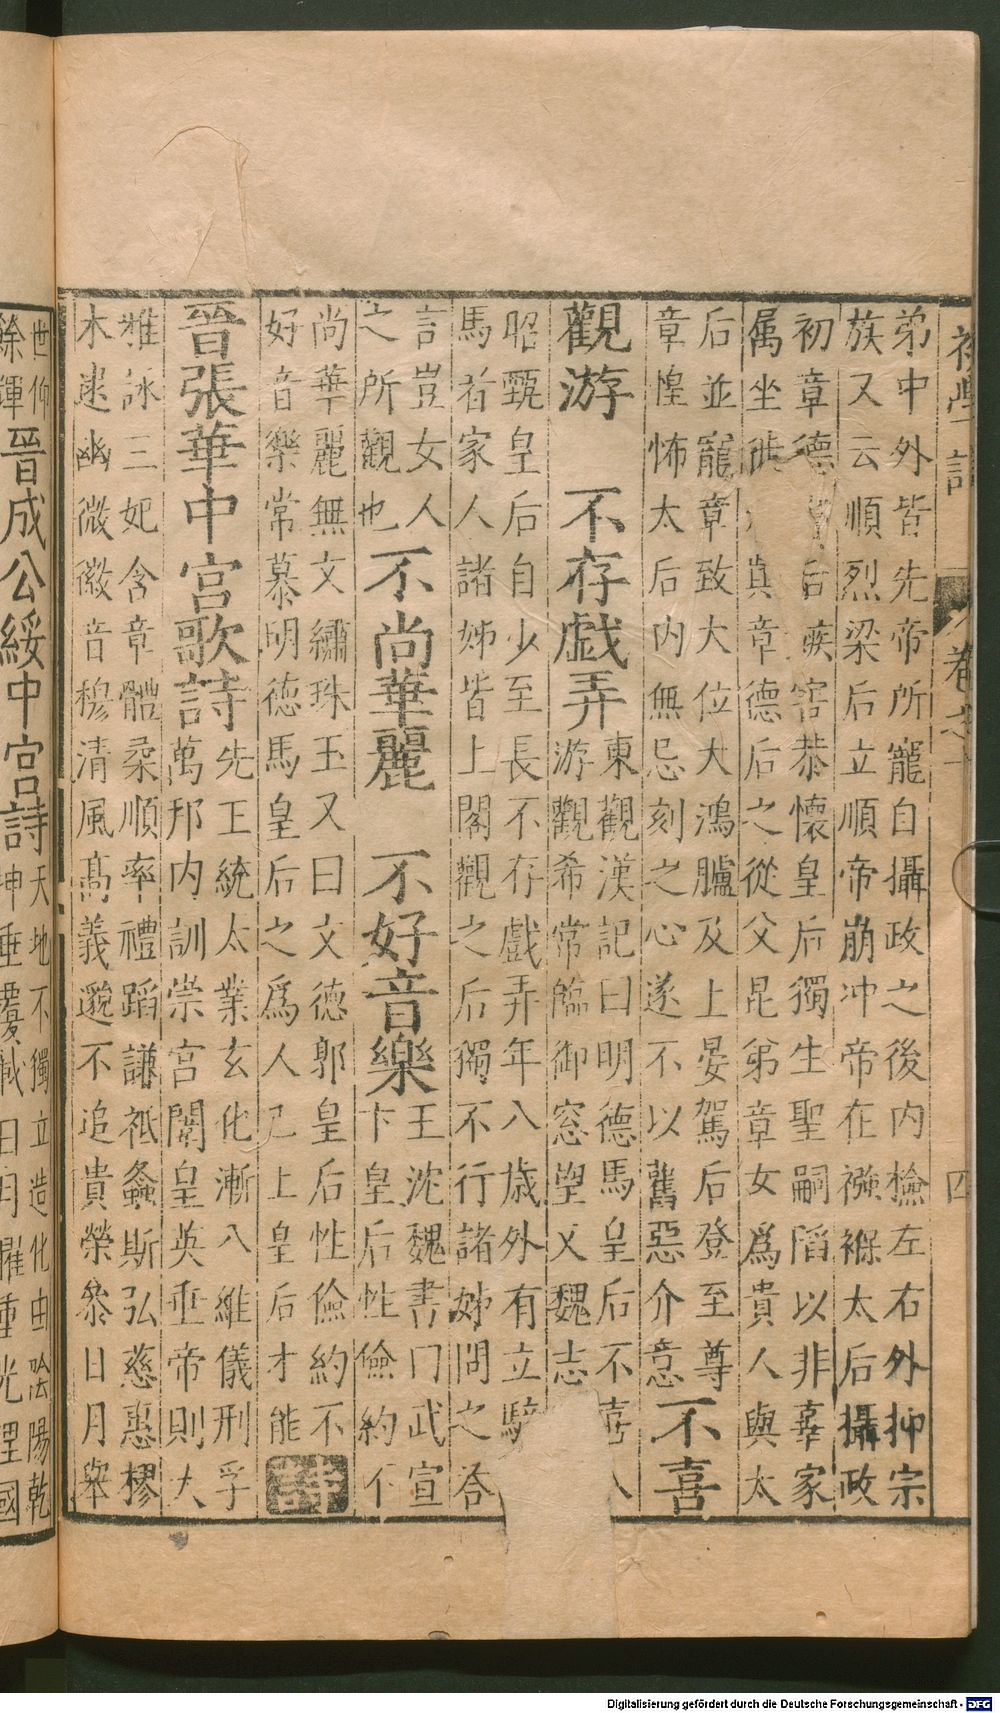 弟中外皆先帝所寵自攝政之後内撿左右外抑宗
族又云順烈梁后立順帝崩冲帝在襁褓太后攝政
初章德后疾害恭懷皇后獨生聖嗣陷以非辜家
属坐徙真章德后之從父昆弟章女爲貴人與太
后並寵章致大位大鴻臚及上晏駕后登至尊
章惶怖太后内無忌刻之心遂不以舊惡介意
不喜
觀游
不存戯弄
東觀漢記曰明德馬皇后不喜人
游觀希常臨御窓望又魏志
昭甄皇后自少至長不存戲弄年八歳外有立騎
馬者家人諸姊皆上閣觀之后獨不行諸姊問之答
言豈女人
之所觀也
不尚華麗
不好音樂
王沈魏書曰武宣
卞皇后性儉約不
尚華麗無文繡珠玉又曰文德郭皇后性儉約不
好音樂常慕明德馬皇后之爲人已上皇后才能
詩
晉張華中宮歌詩
先王統太業玄化漸八維儀刑孚
萬邦内訓崇宮闈皇英垂帝則大
雅詠三妃含章體柔順率禮蹈謙祗螽斯弘慈惠樛
木逮幽微徽音穆清風髙義邈不追貴榮參日月舉
世仰
餘輝
晉成公綏中宮詩
天地不獨立造化由陰陽乾
坤垂覆載日月曜重光理國
初學記
卷之十
四
Digitalisierung gefördert durch die Deutsche Forschungsgemeinschaft - DFG